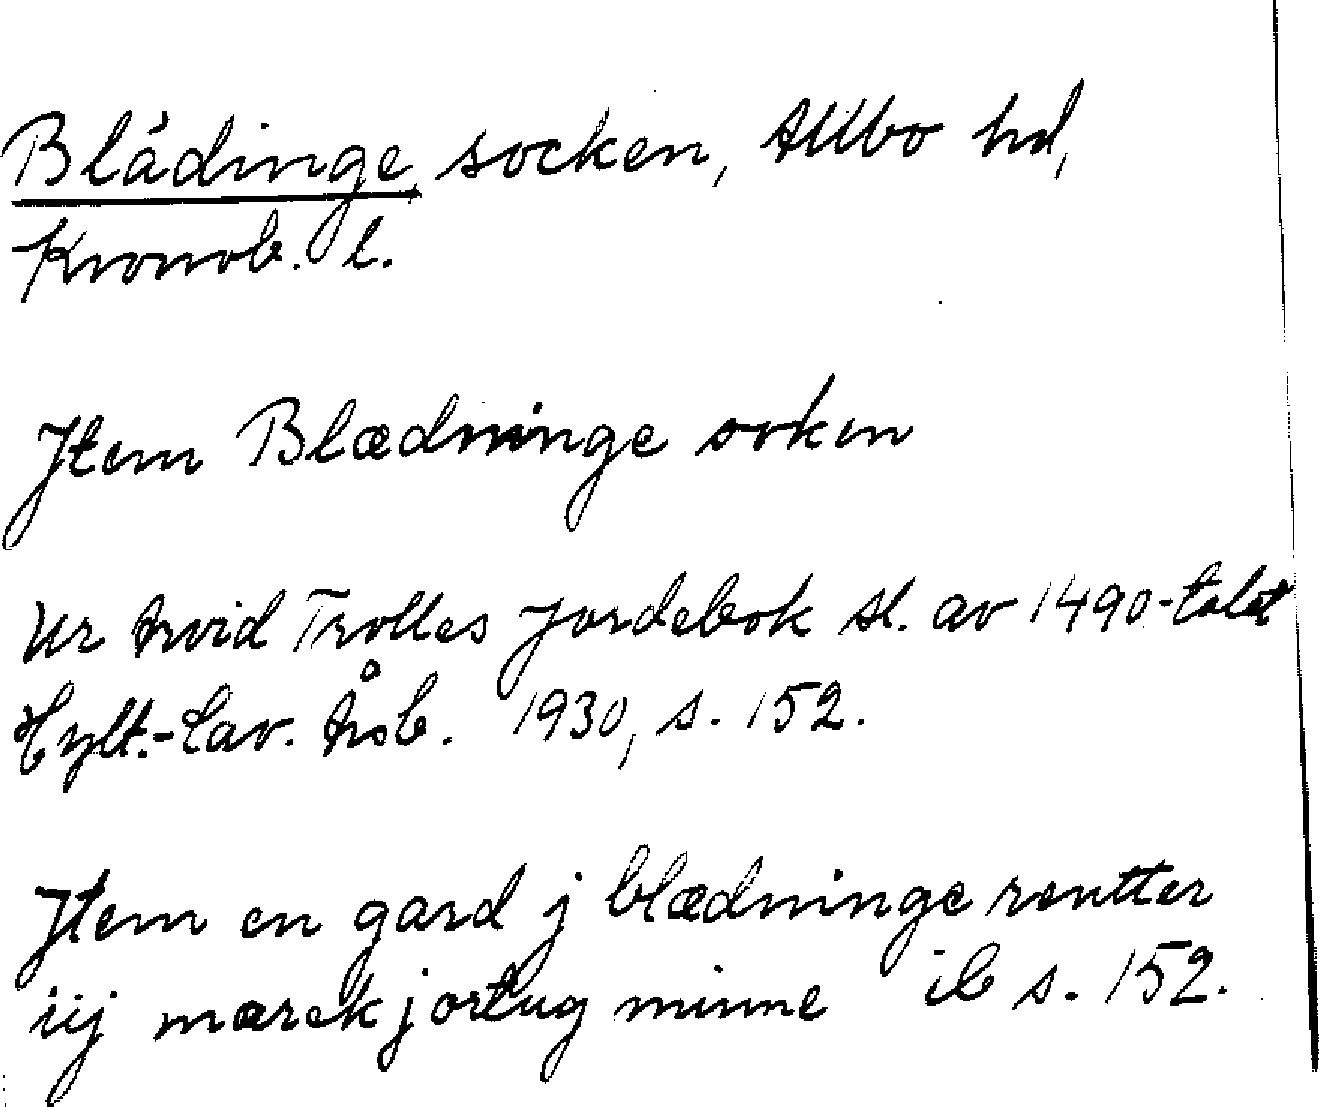 Blädinge socken, Allbo hd,
Kronob. l.
Jtem Blædninge sokin
Ur Arvid Trolles Jordebok sl. av 1490-talet
Hylt.-Cav. Årsb. 1930, s. 152.
Jtem en gard j blædninge rentter
iij marck j ortug minne ib s. 152.